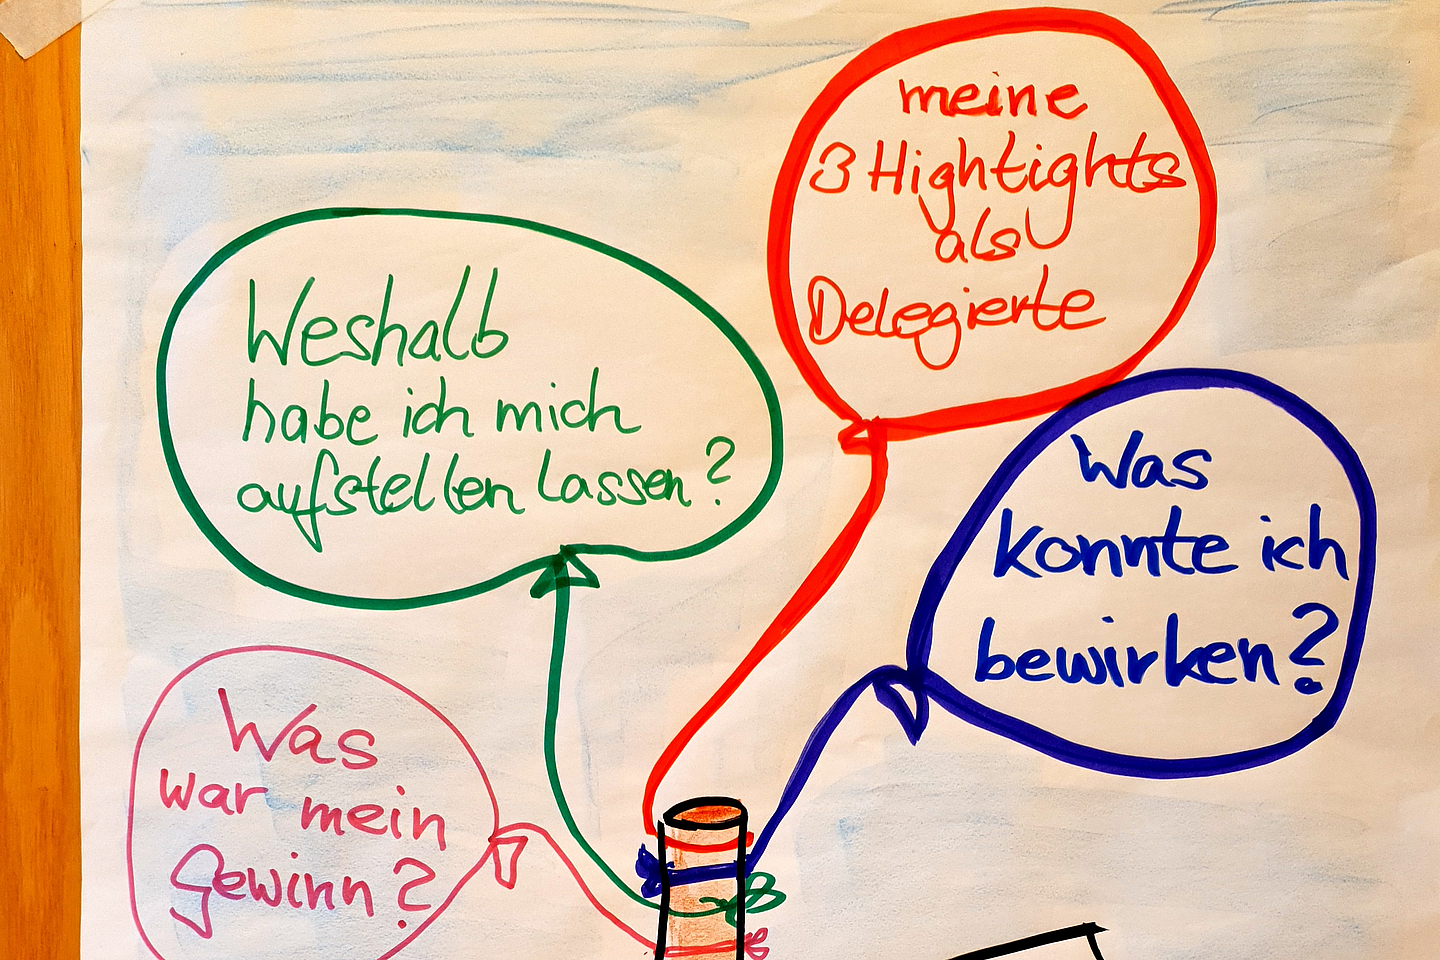 meine
3 Hightights
als
Delegierte
Weshalb
habe ich mich
aufstellen lassen?
Was
konnte ich
bewirken?
Was
war mein
Gewinn?